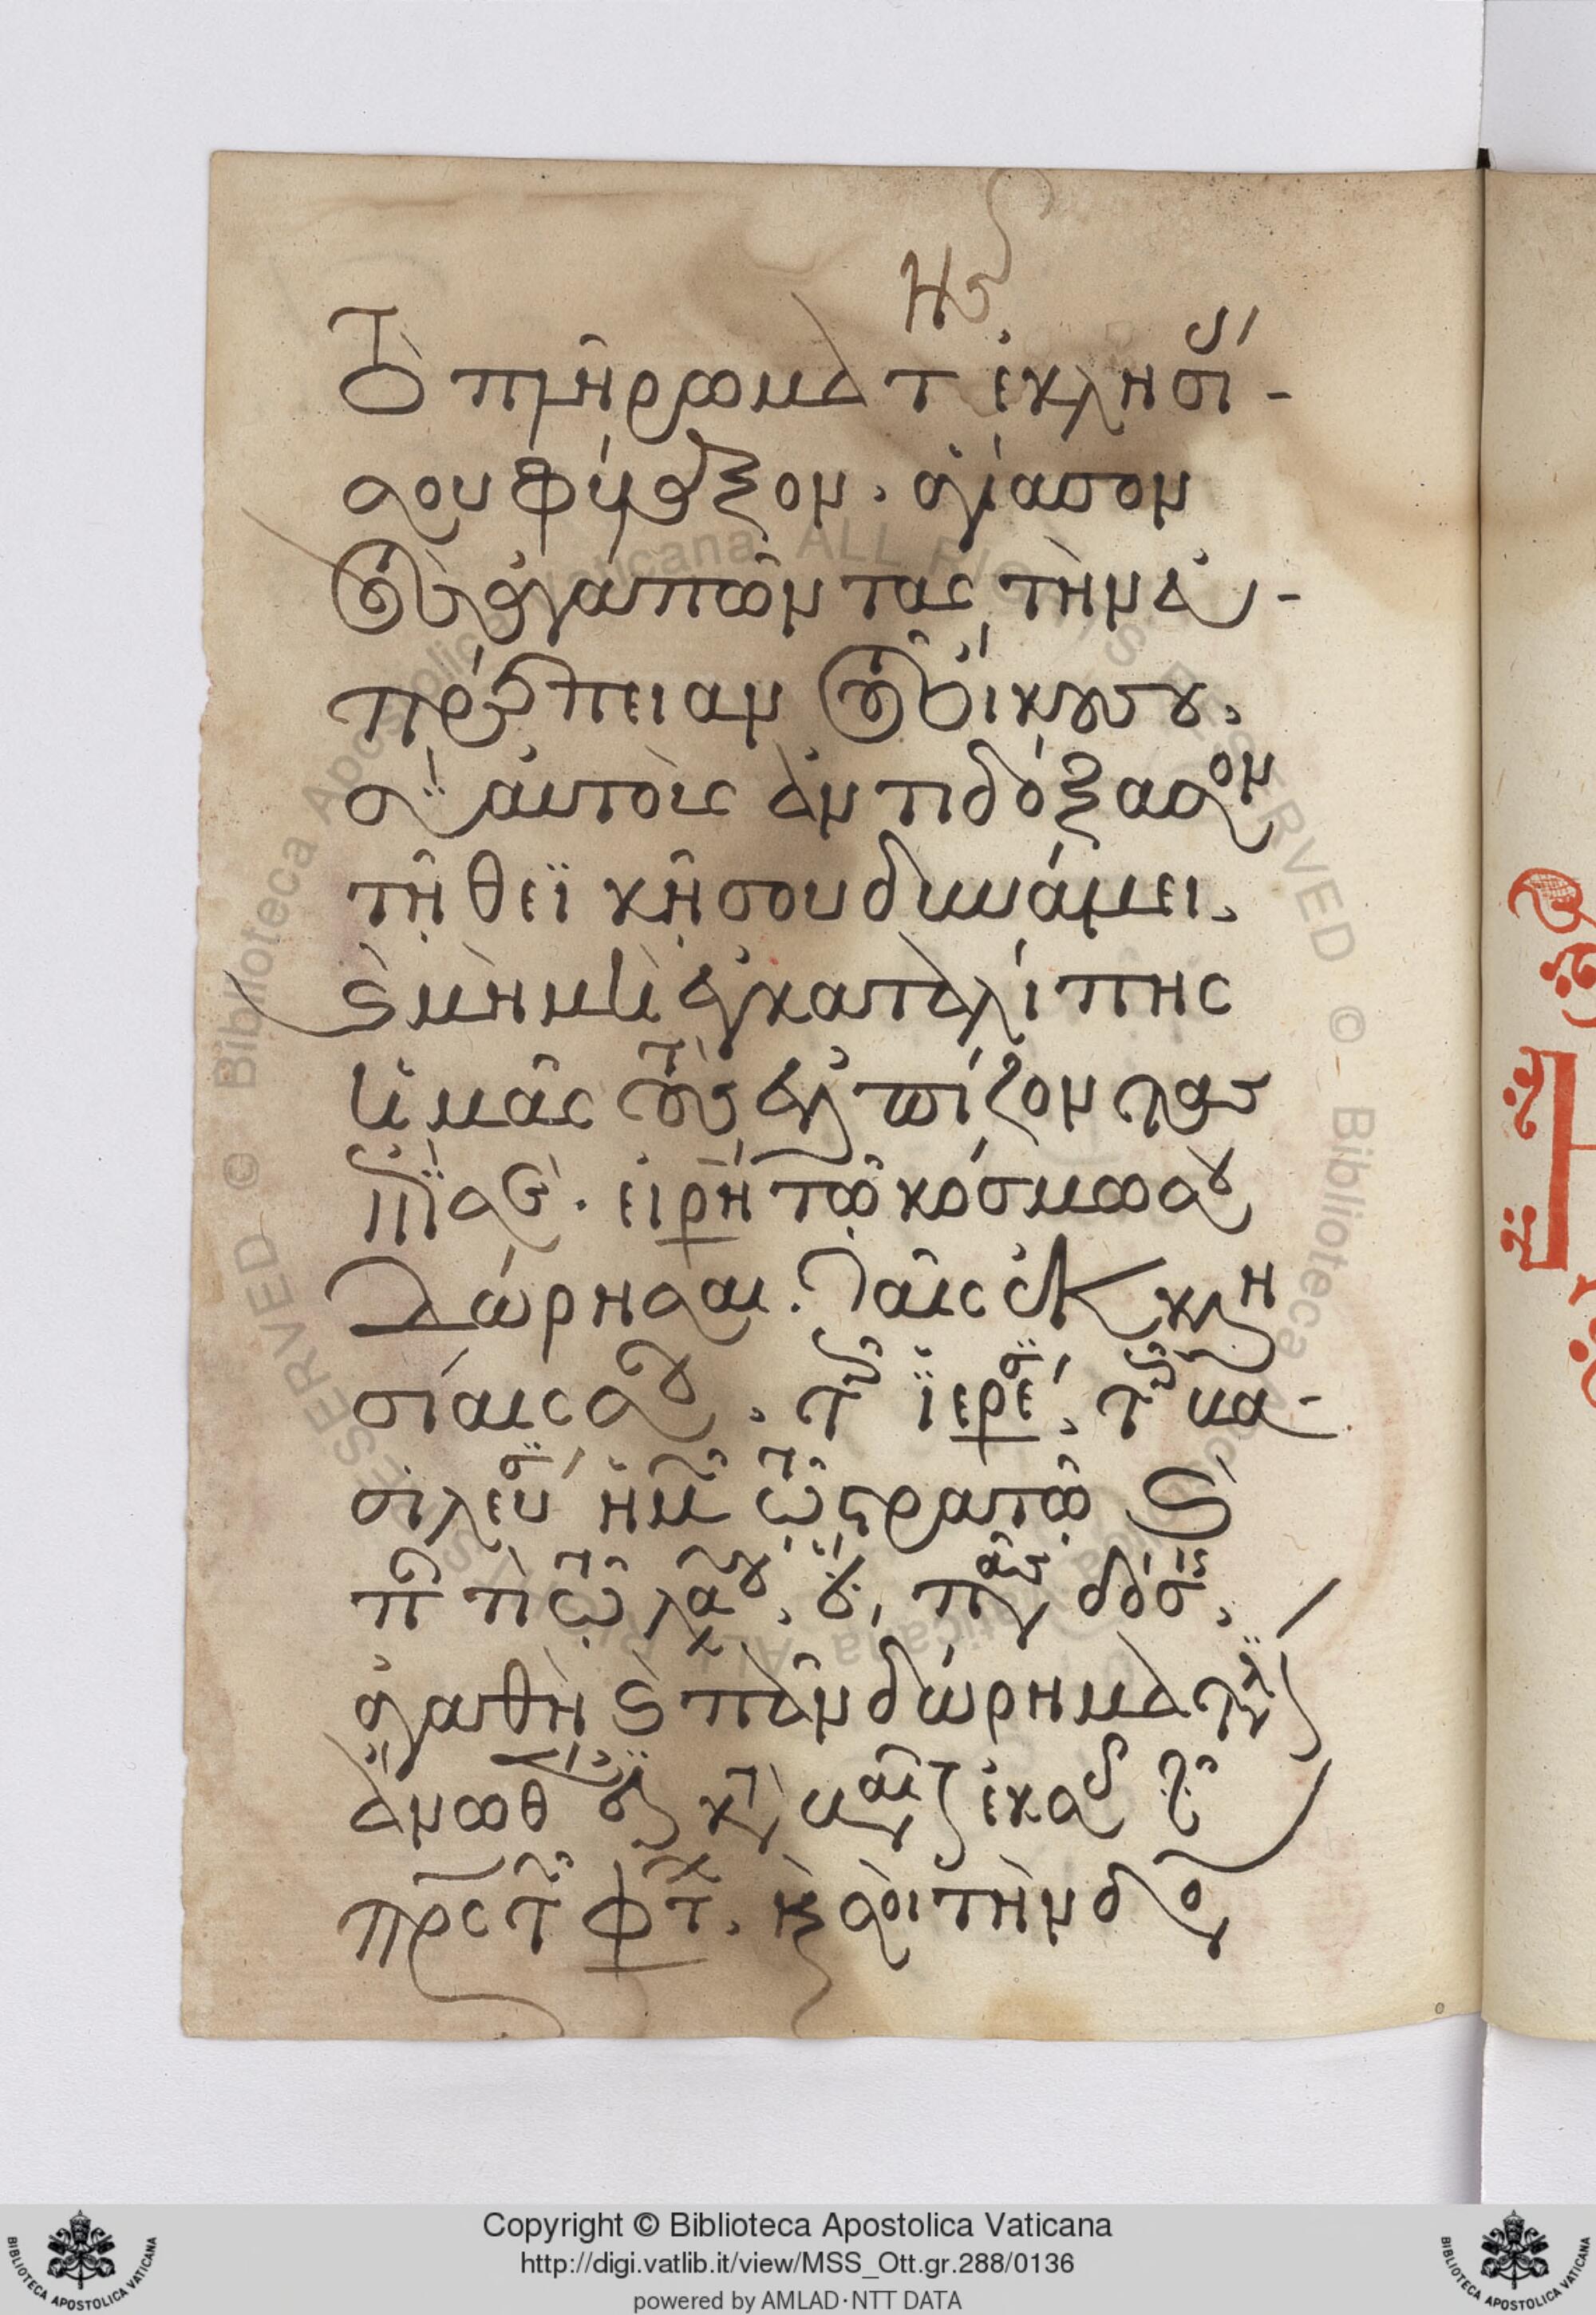 Τὸ πλήρωμα τ ἐκλησί-
ας σου φύλαξον. ἁγίασον
τοὺς ἀγαπῶντας τὴν εὐ-
πρέπειαν τοῦ οἴκου σου.
σὺ αὐτοὺς ἀντιδόξασον
τῇ θεϊκῇ σου δυνάμει.
καὶ μὴ ἐγκαταλίπης
ἡμᾶς τοὺς ἐλπίζοντας
ἐπὶ σέ. εἰρή τῷ κόσμω σου
δώρησαι. ταῖς ἐκκλη
σίαις σου. τοῖς ἱερεῦσι. τοῖς βα-
σιλεῦσι ἡμῶν τῷ στρατῷ καὶ
παντὶ τῷ λαῷ σου. ὅτι πᾶσα δόσις
ἀγαθὴ καὶ πᾶν δώρημα τέλειον
ἄνωθέν ἐστι καταβαῖνον ἐκ σοῦ τοῦ
πρς τῶν φώτων. καὶ σοὶ τὴν δόξαν
Copyright © Biblioteca Apostolica Vaticana
http://digi.vatlib.it/view/MSS_Ott.gr.288/0136
powered by AMLAD·NTT DATA